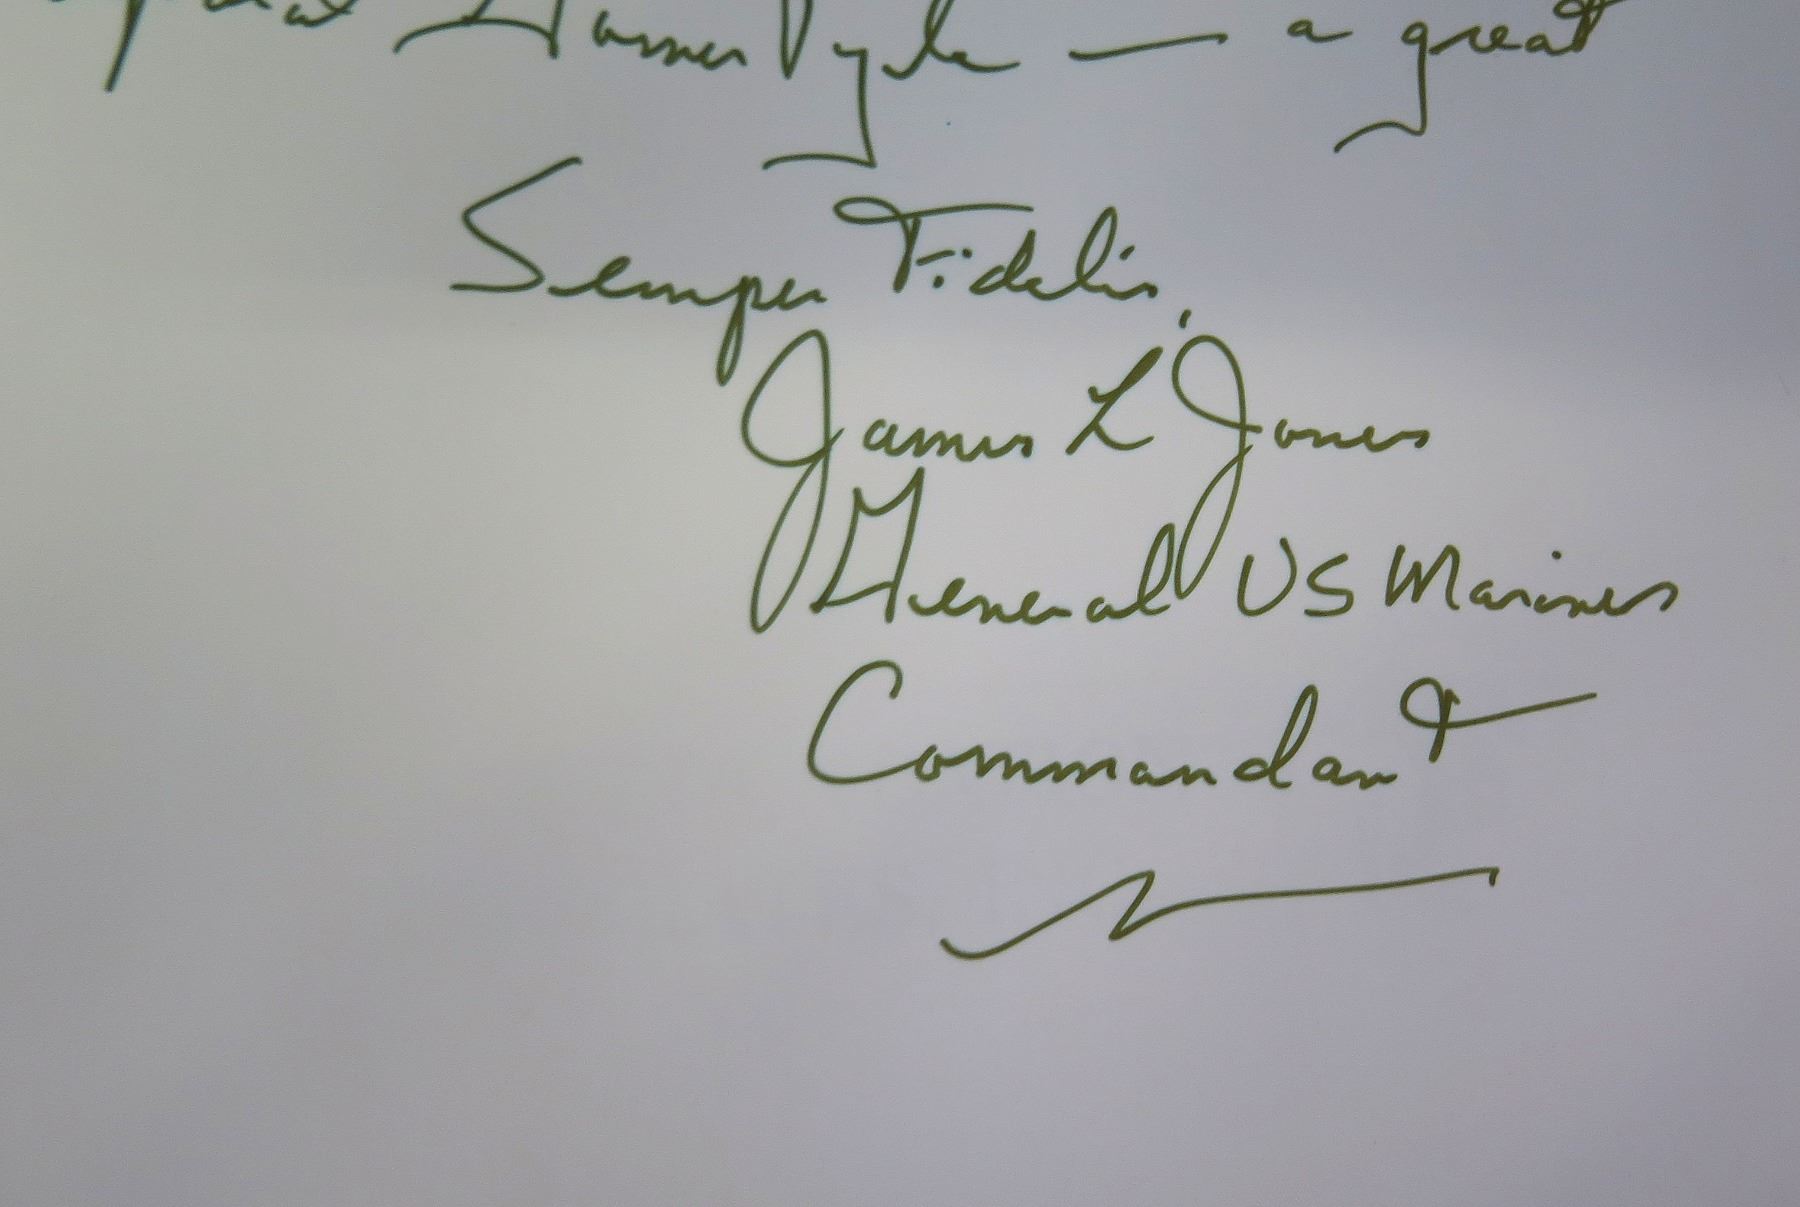 Gomer Pyle — a great
Semper Fidelis,
James L Jones
General US Marines
Commandant